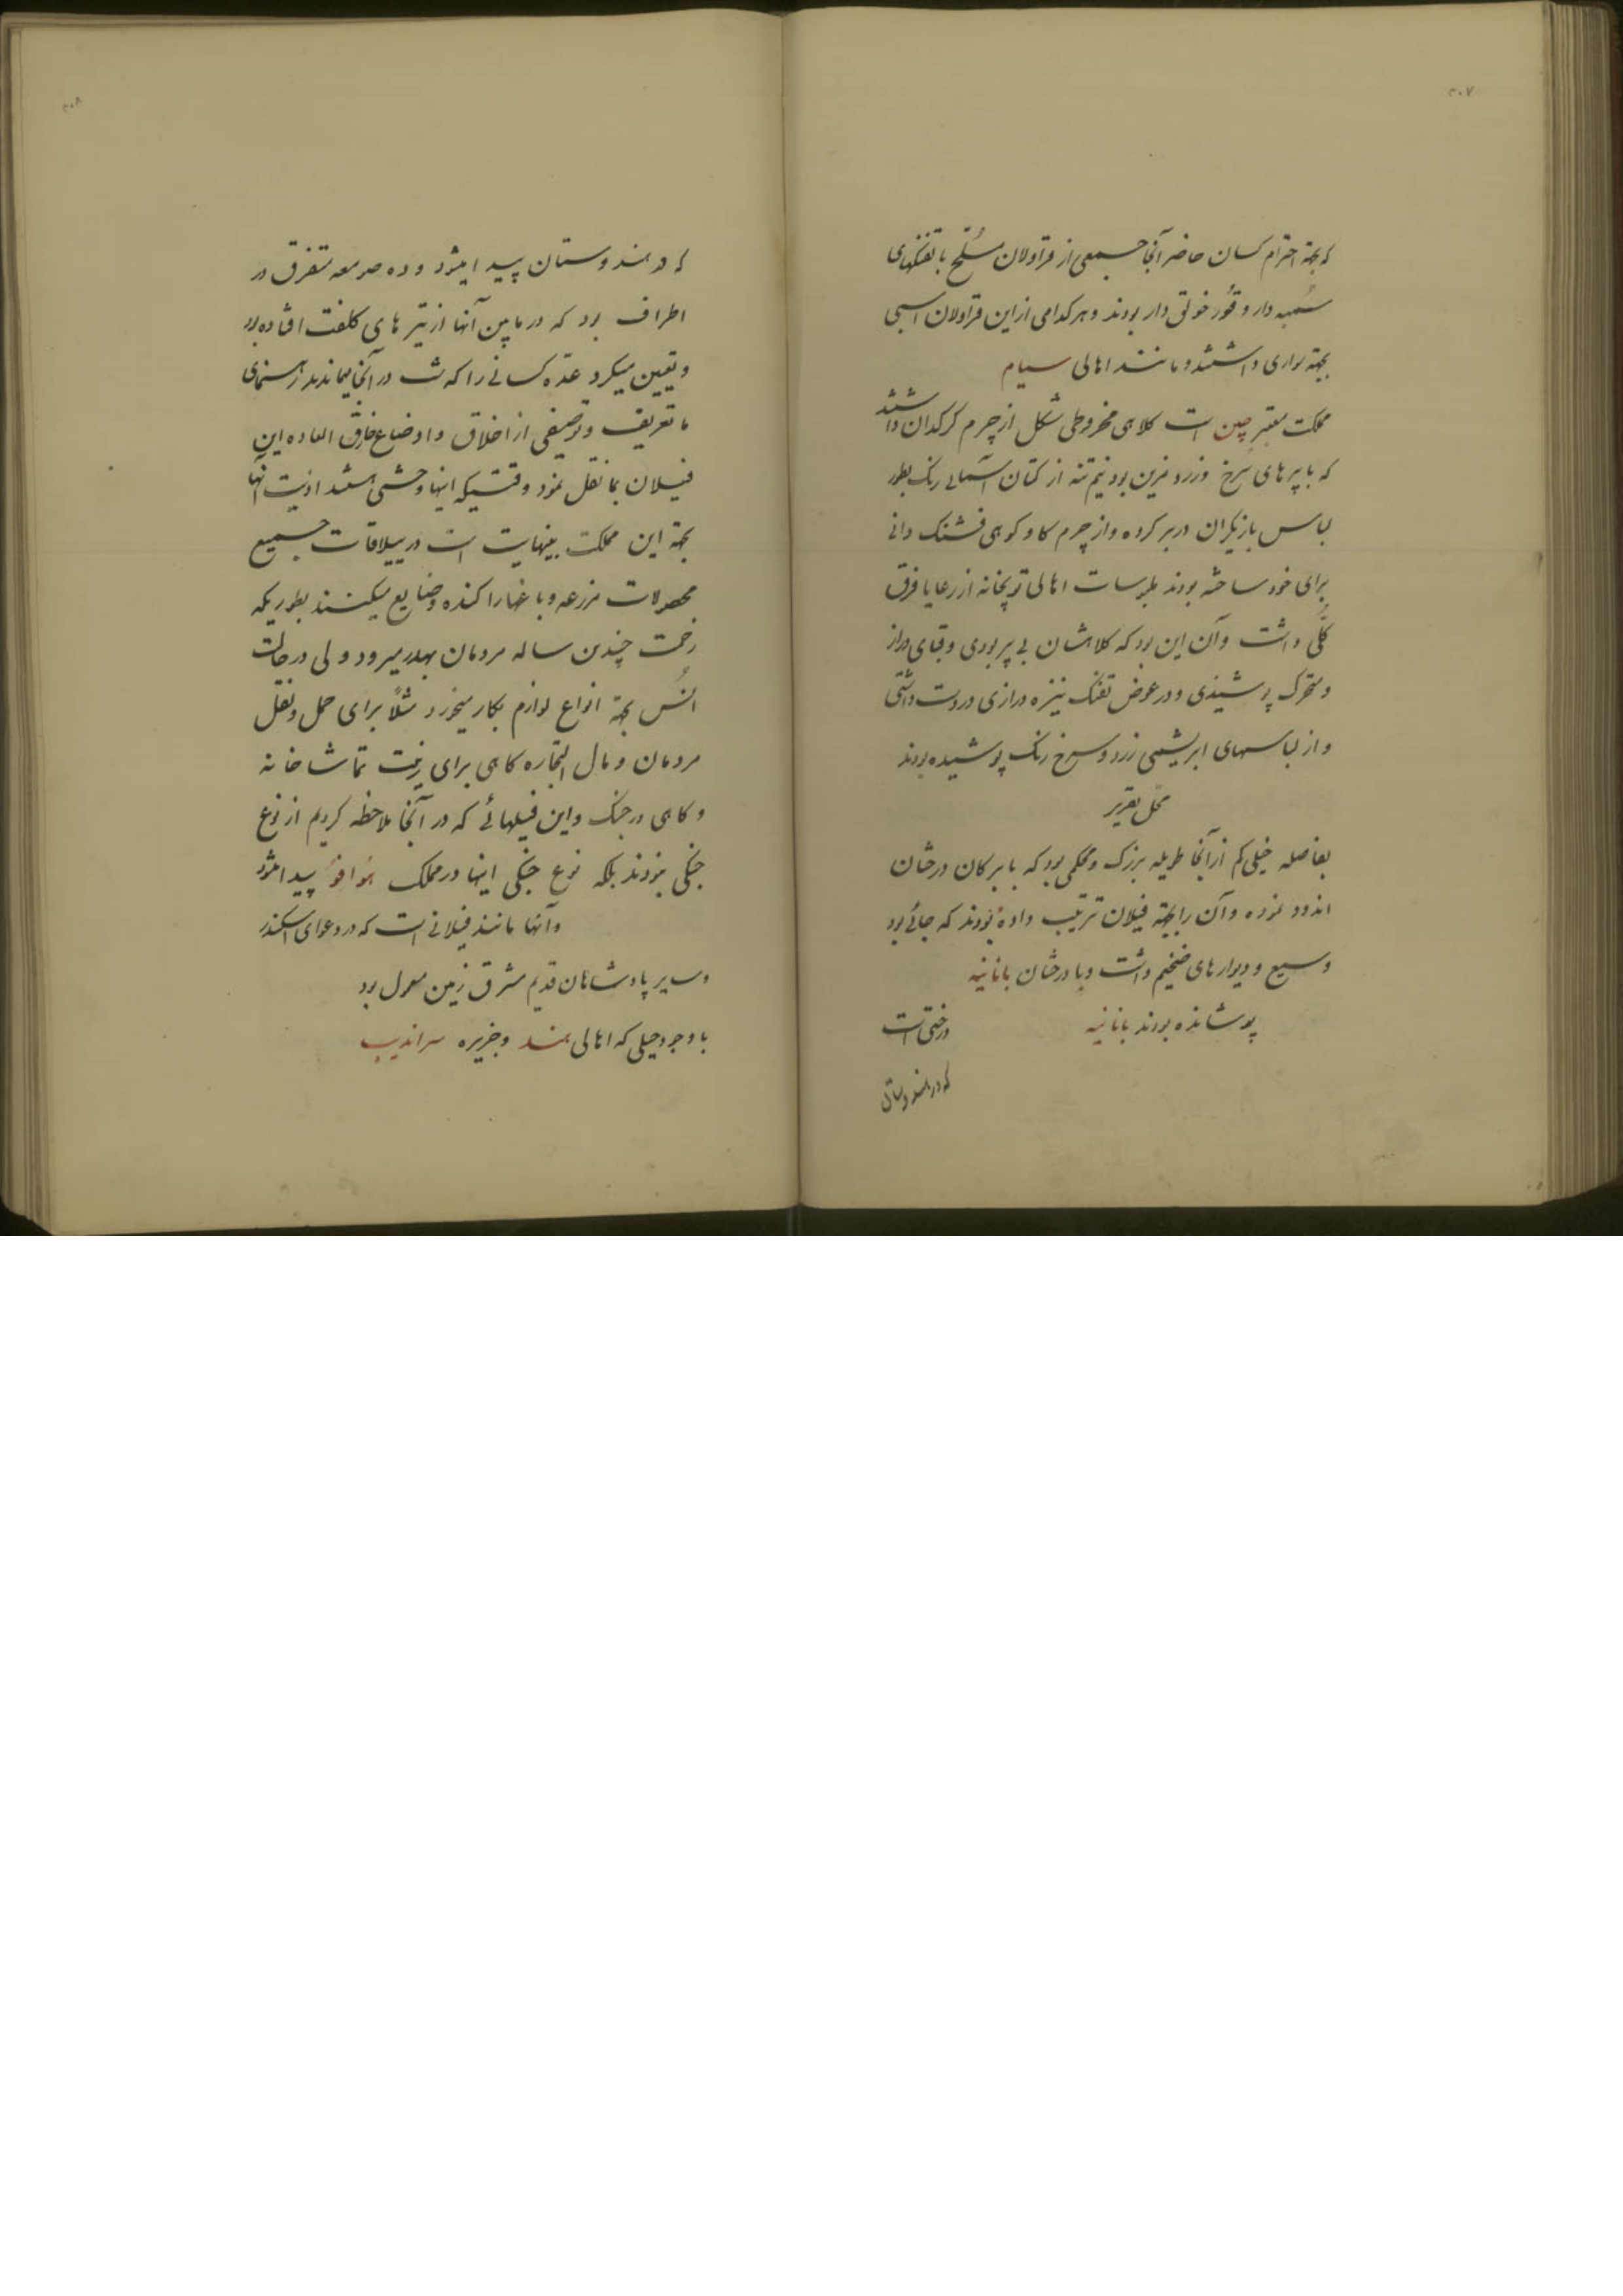 ۳۰۷
که بجهة احترام کسان حاضر آنجا جمعی از قراولان مسلح با تفنگهای
سُمبه دار و قور خولق دار بودند و هرکدامی از این قراولان اسبی
بجهة سواری داشتند و مانند اهالی سیام
مملکت معتبر چین است کلاهی مخروطی شکل از چرم کرکدان داشتند
که با پرهای سرخ و زرد مزین بود نیم تنه از کتان آسمانی رنک بطور
لباس بازیکران در بر کرده و از چرم کاو کوهی فشنک دانی
برای خود ساخته بودند ملبوسات اهالی توپخانه از رعایا فرق
کلّی داشت و آن این بود که کلاهشان بی پر بودی و قبای دراز
و متحرک پوشیدی و در عوض تفنک نیزه درازی در دست داشتی
و از لباسهای ابریشمی زرد و سرخ رنک پوشیده بودند
محل تقریر
بفاصله خیلی کم از آنجا طویله بزرک و محکمی بود که با برکان درختان
اندود نموده و آن را بجهة فیلان ترتیب داده بودند که جائی بود
وسیع و دیوارهای ضخیم داشت و با درختان بانانیه
پوشانده بودند بانانیه درختی است
که در هندوستان
۳۰۸
که در هندوستان پیدا میشود و ده صومعه متفرق در
اطراف بود که در مابین آنها از تیرهای کلفت افتاده بود
و تعیین میکرد عدّه کسانی را که شب در آنجا میماندند رهنمای
ما تعریف و توصیفی از اخلاق و اوضاع خارق العاده این
فیلان بما نقل نمود وقتیکه اینها وحشی هستند اذیت آنها
بجهة این مملکت بینهایت است در ییلاقات جمیع
محصولات مزرعه و باغها را کنده و ضایع میکنند بطوریکه
زحمت چندین ساله مردمان بهدر میرود ولی در حالت
اُنس بجهة انواع لوازم بکار میخورد مثلاً برای حمل و نقل
مردمان و مال التجاره کاهی برای زینت تماشا خانه
و کاهی در جنک و این فیلهائی که در آنجا ملاحظه کردیم از نوع
جنکی نبودند بلکه نوع جنکی اینها در مملکت هوافو پیدا میشود
و آنها مانند فیلانی است که در دعوای اسکندر
و سایر پادشاهان قدیم مشرق زمین معمول بود
با وجود حیلی که اهالی هند و جزیره سراندیب